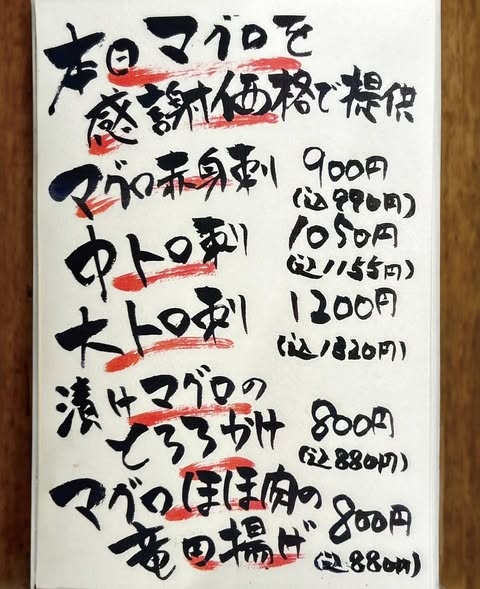 本日マグロを
感謝価格で提供
マグロ赤身刺 900円
(込990円)
中トロ刺 1050円
(込1155円)
大トロ刺 1200円
(込1320円)
漬けマグロの
とろろがけ 800円
(込880円)
マグロほほ肉の
竜田揚げ 800円
(込880円)